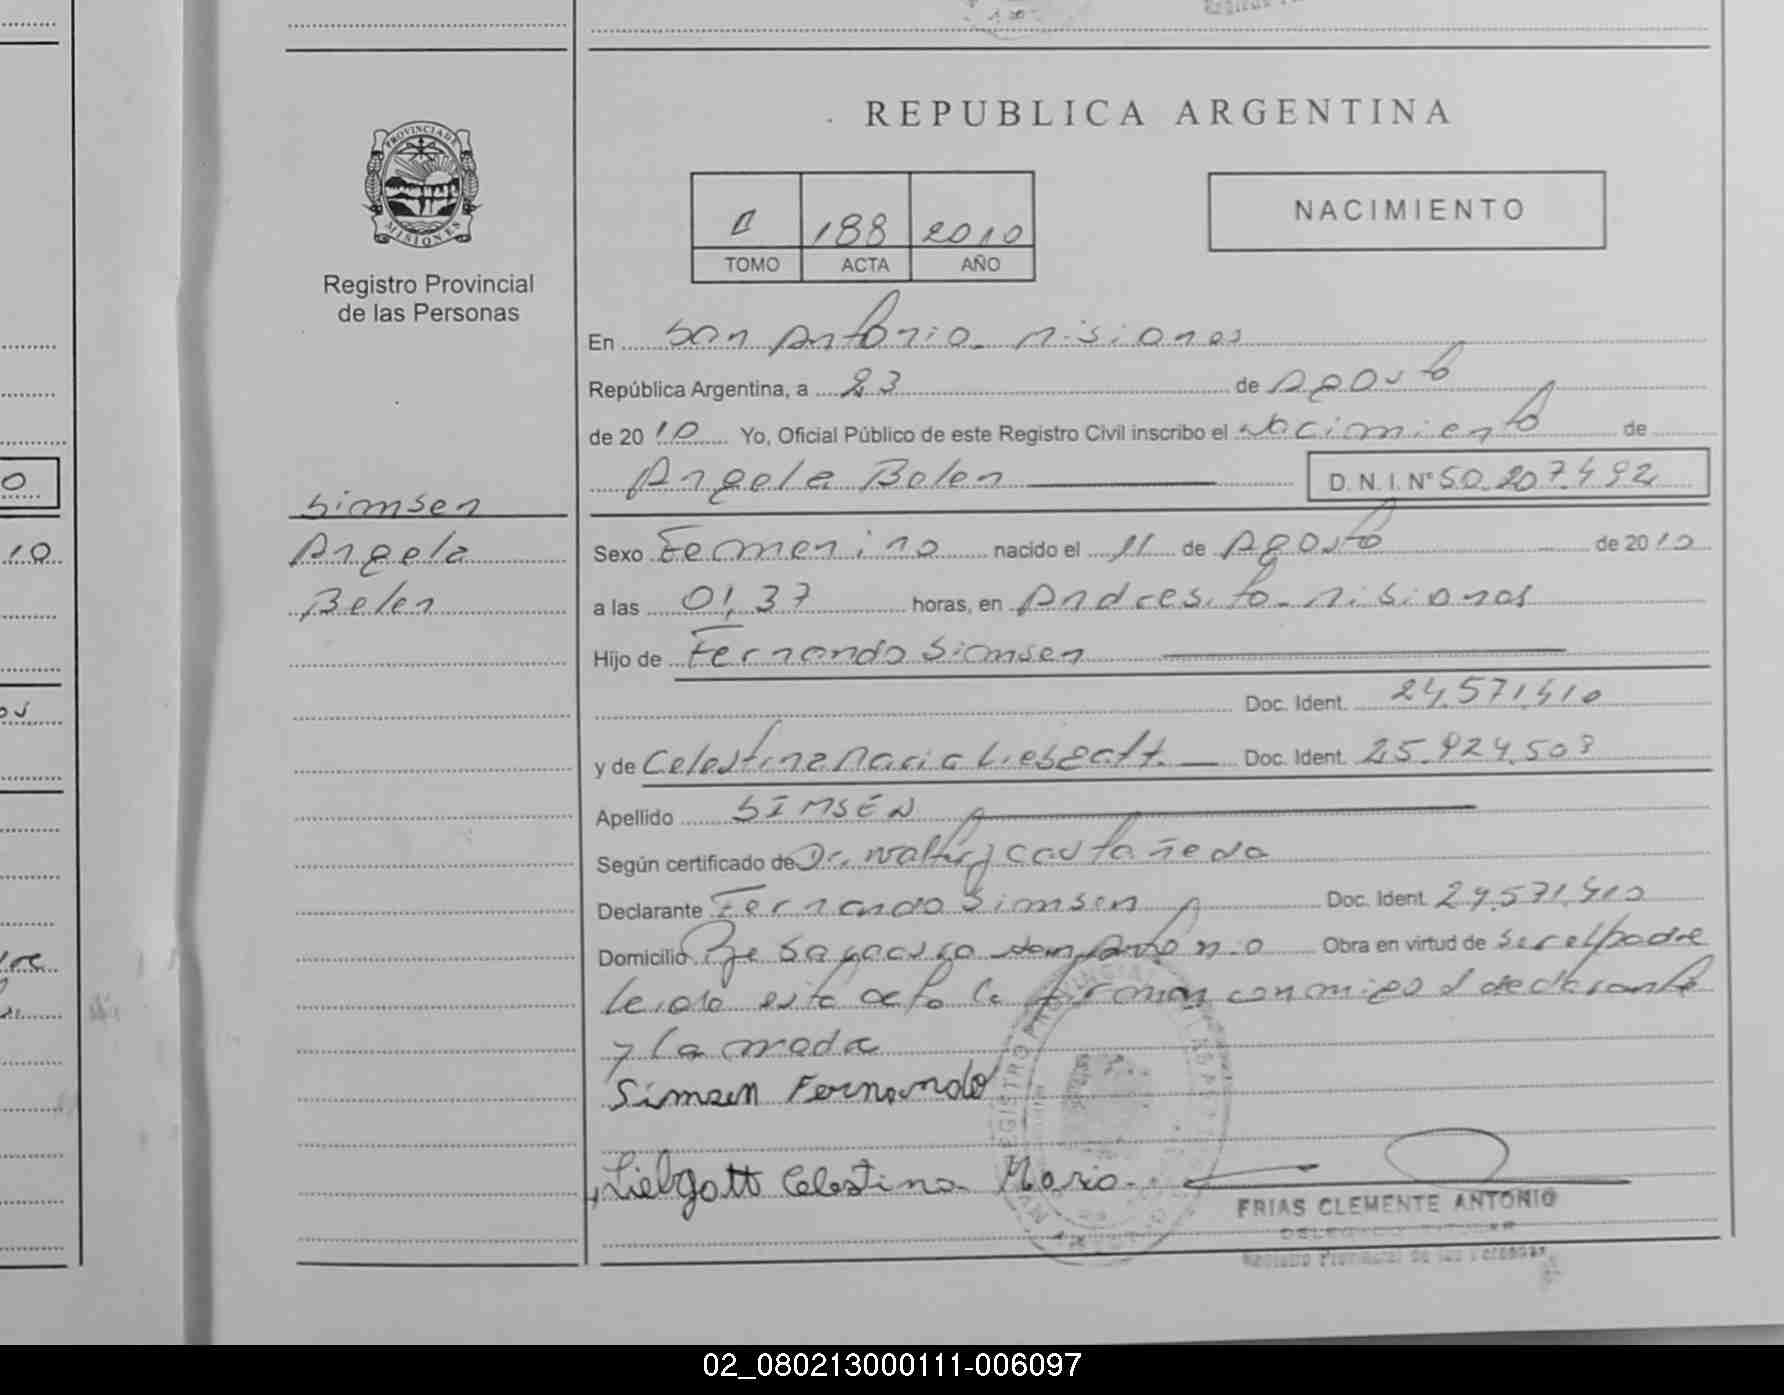 REPUBLICA ARGENTINA
PROVINCIA DE
MISIONES
Registro Provincial
de las Personas
188 2010
TOMO ACTA AÑO
NACIMIENTO
En San Antonio - Misiones
República Argentina, a 23 de Agosto
de 2010 Yo, Oficial Público de este Registro Civil inscribo el Nacimiento de
Angela Belen D.N.I. Nº 50.207.492
Simsen
Angela
Belen
Sexo Femenino nacido el 11 de Agosto de 2010
a las 01,37 horas, en Andresito - Misiones
Hijo de Fernando Simsen
Doc. Ident. 24.571.410
y de Celestina Maria Liebgott. Doc. Ident. 25.924.503
Apellido SIMSEN
Según certificado de Dr. Castañeda
Declarante Fernando Simsen Doc. Ident. 24.571.410
Domicilio San Antonio Obra en virtud de ser el padre
leida esta acta la firman conmigo el declarante
y la madre
Simsen Fernando
Liebgott Celestina Maria.
FRIAS CLEMENTE ANTONIO
DELEGADO TITULAR
Registro Provincial de las Personas
02_080213000111-006097